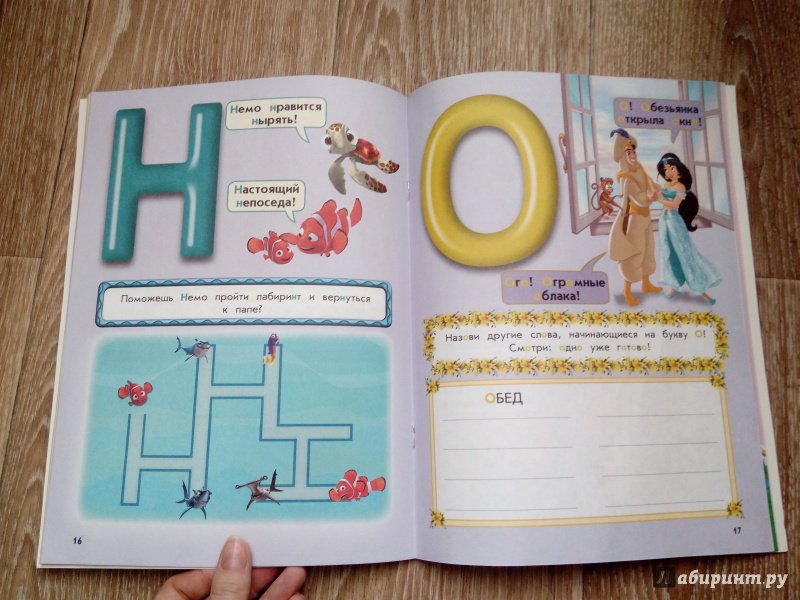 Н
Немо нравится
нырять!
Настоящий
непоседа!
Поможешь Немо пройти лабиринт и вернуться
к папе?
16
О
О! Обезьянка
открыла окно!
Ого! Огромные
облака!
Назови другие слова, начинающиеся на букву О!
Смотри: одно уже готово!
ОБЕД
17
Лабиринт.ру